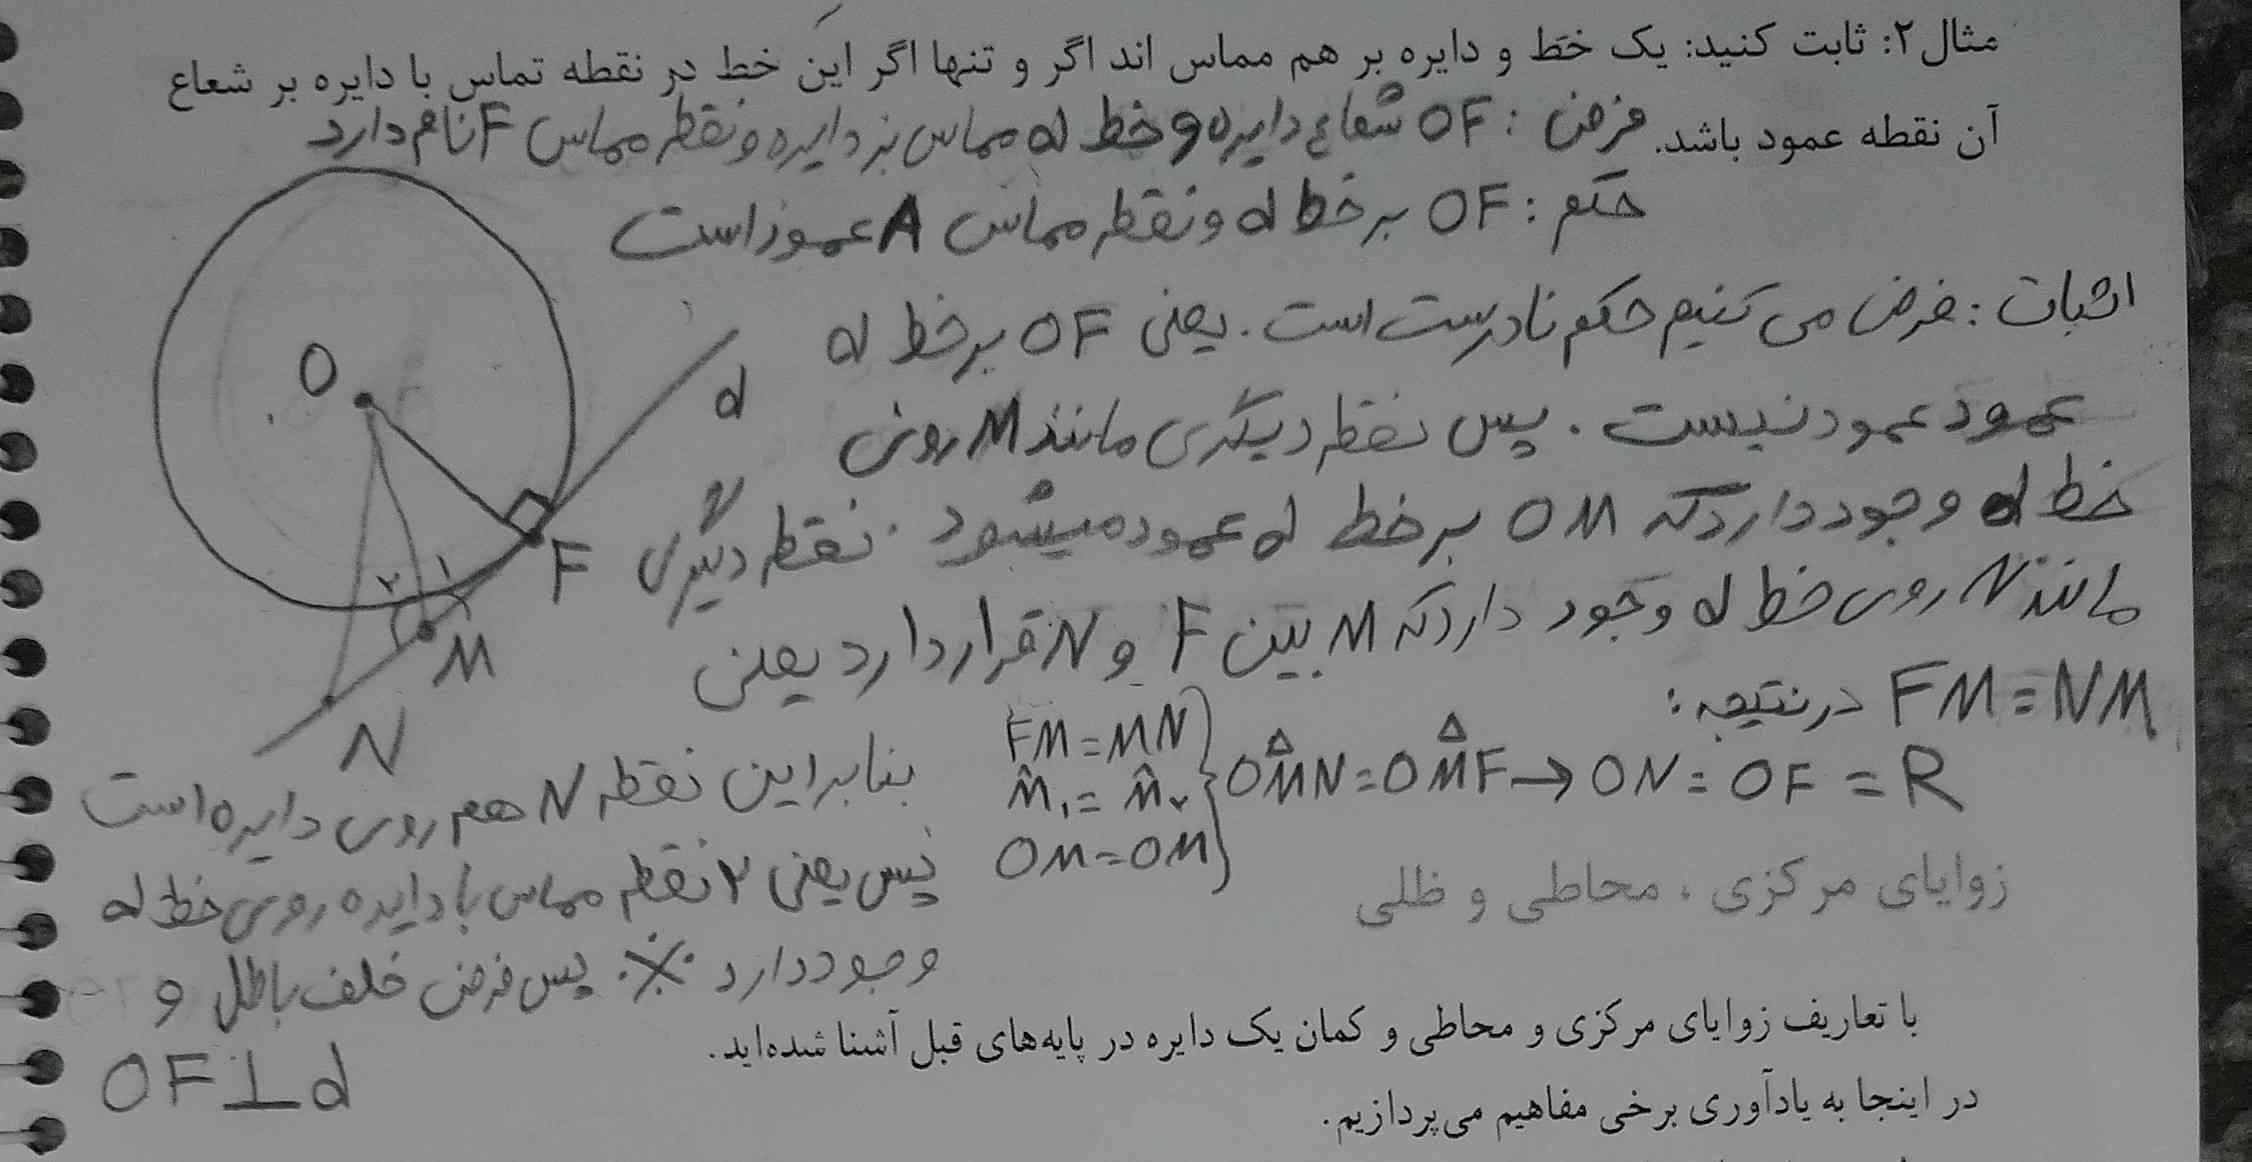 مثال۲: ثابت کنید: یک خط و دایره بر هم مماس اند اگر و تنها اگر این خط در نقطه تماس با دایره بر شعاع
آن نقطه عمود باشد. فرض : OF شعاع دایره و خط d مماس بر دایره و نقطه مماس F نام دارد
حکم : OF بر خط d و نقطه مماس A عمود است
اثبات : فرض می کنیم حکم نادرست است . یعنی OF بر خط d
عمود عمود نیست . پس نقطه دیگری مانند M روی
خط d وجود دارد که OM بر خط d عمود میشود . نقطه دیگری
مانند N روی خط d وجود دارد که M بین F و N قرار دارد یعنی
FM = NM در نتیجه :
FM = MN
M̂₁ = M̂₂
OM = OM
OM̂N = OM̂F → ON = OF = R
بنابراین نقطه N هم روی دایره است
پس یعنی ۲ نقطه مماس با دایره روی خط d
وجود دارد ※ پس فرض خلف باطل و
OF ⊥ d
O
d
F
۱
۲
M
N
زوایای مرکزی ، محاطی و ظلی
با تعاریف زوایای مرکزی و محاطی و کمان یک دایره در پایه‌های قبل آشنا شده‌اید.
در اینجا به یادآوری برخی مفاهیم می‌پردازیم.